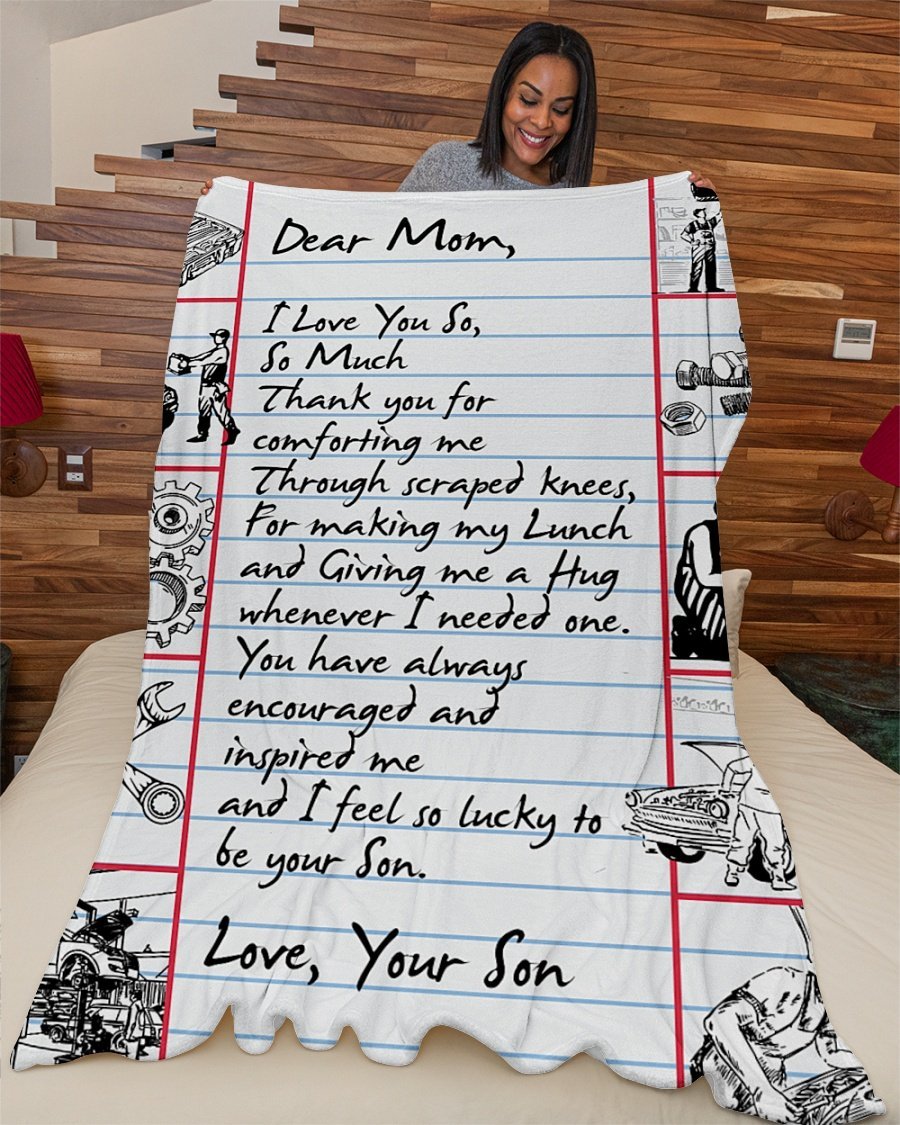 Dear Mom,
I Love You So,
So Much
Thank you for
comforting me
Through scraped knees,
For making my Lunch
and Giving me a Hug
whenever I needed one.
You have always
encouraged and
inspired me
and I feel so lucky to
be your Son.
Love, Your Son